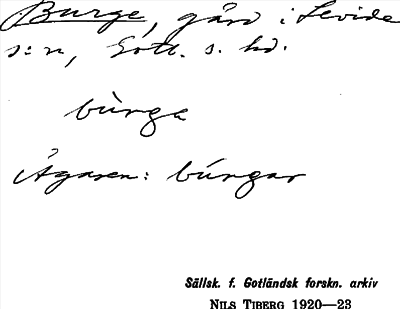 Burge, gård i Levide
s:n, Gotl. s. hd.
bùrge
Ägaren: búrgar
Sällsk. f. Gotländsk forskn. arkiv
NILS TIBERG 1920—23